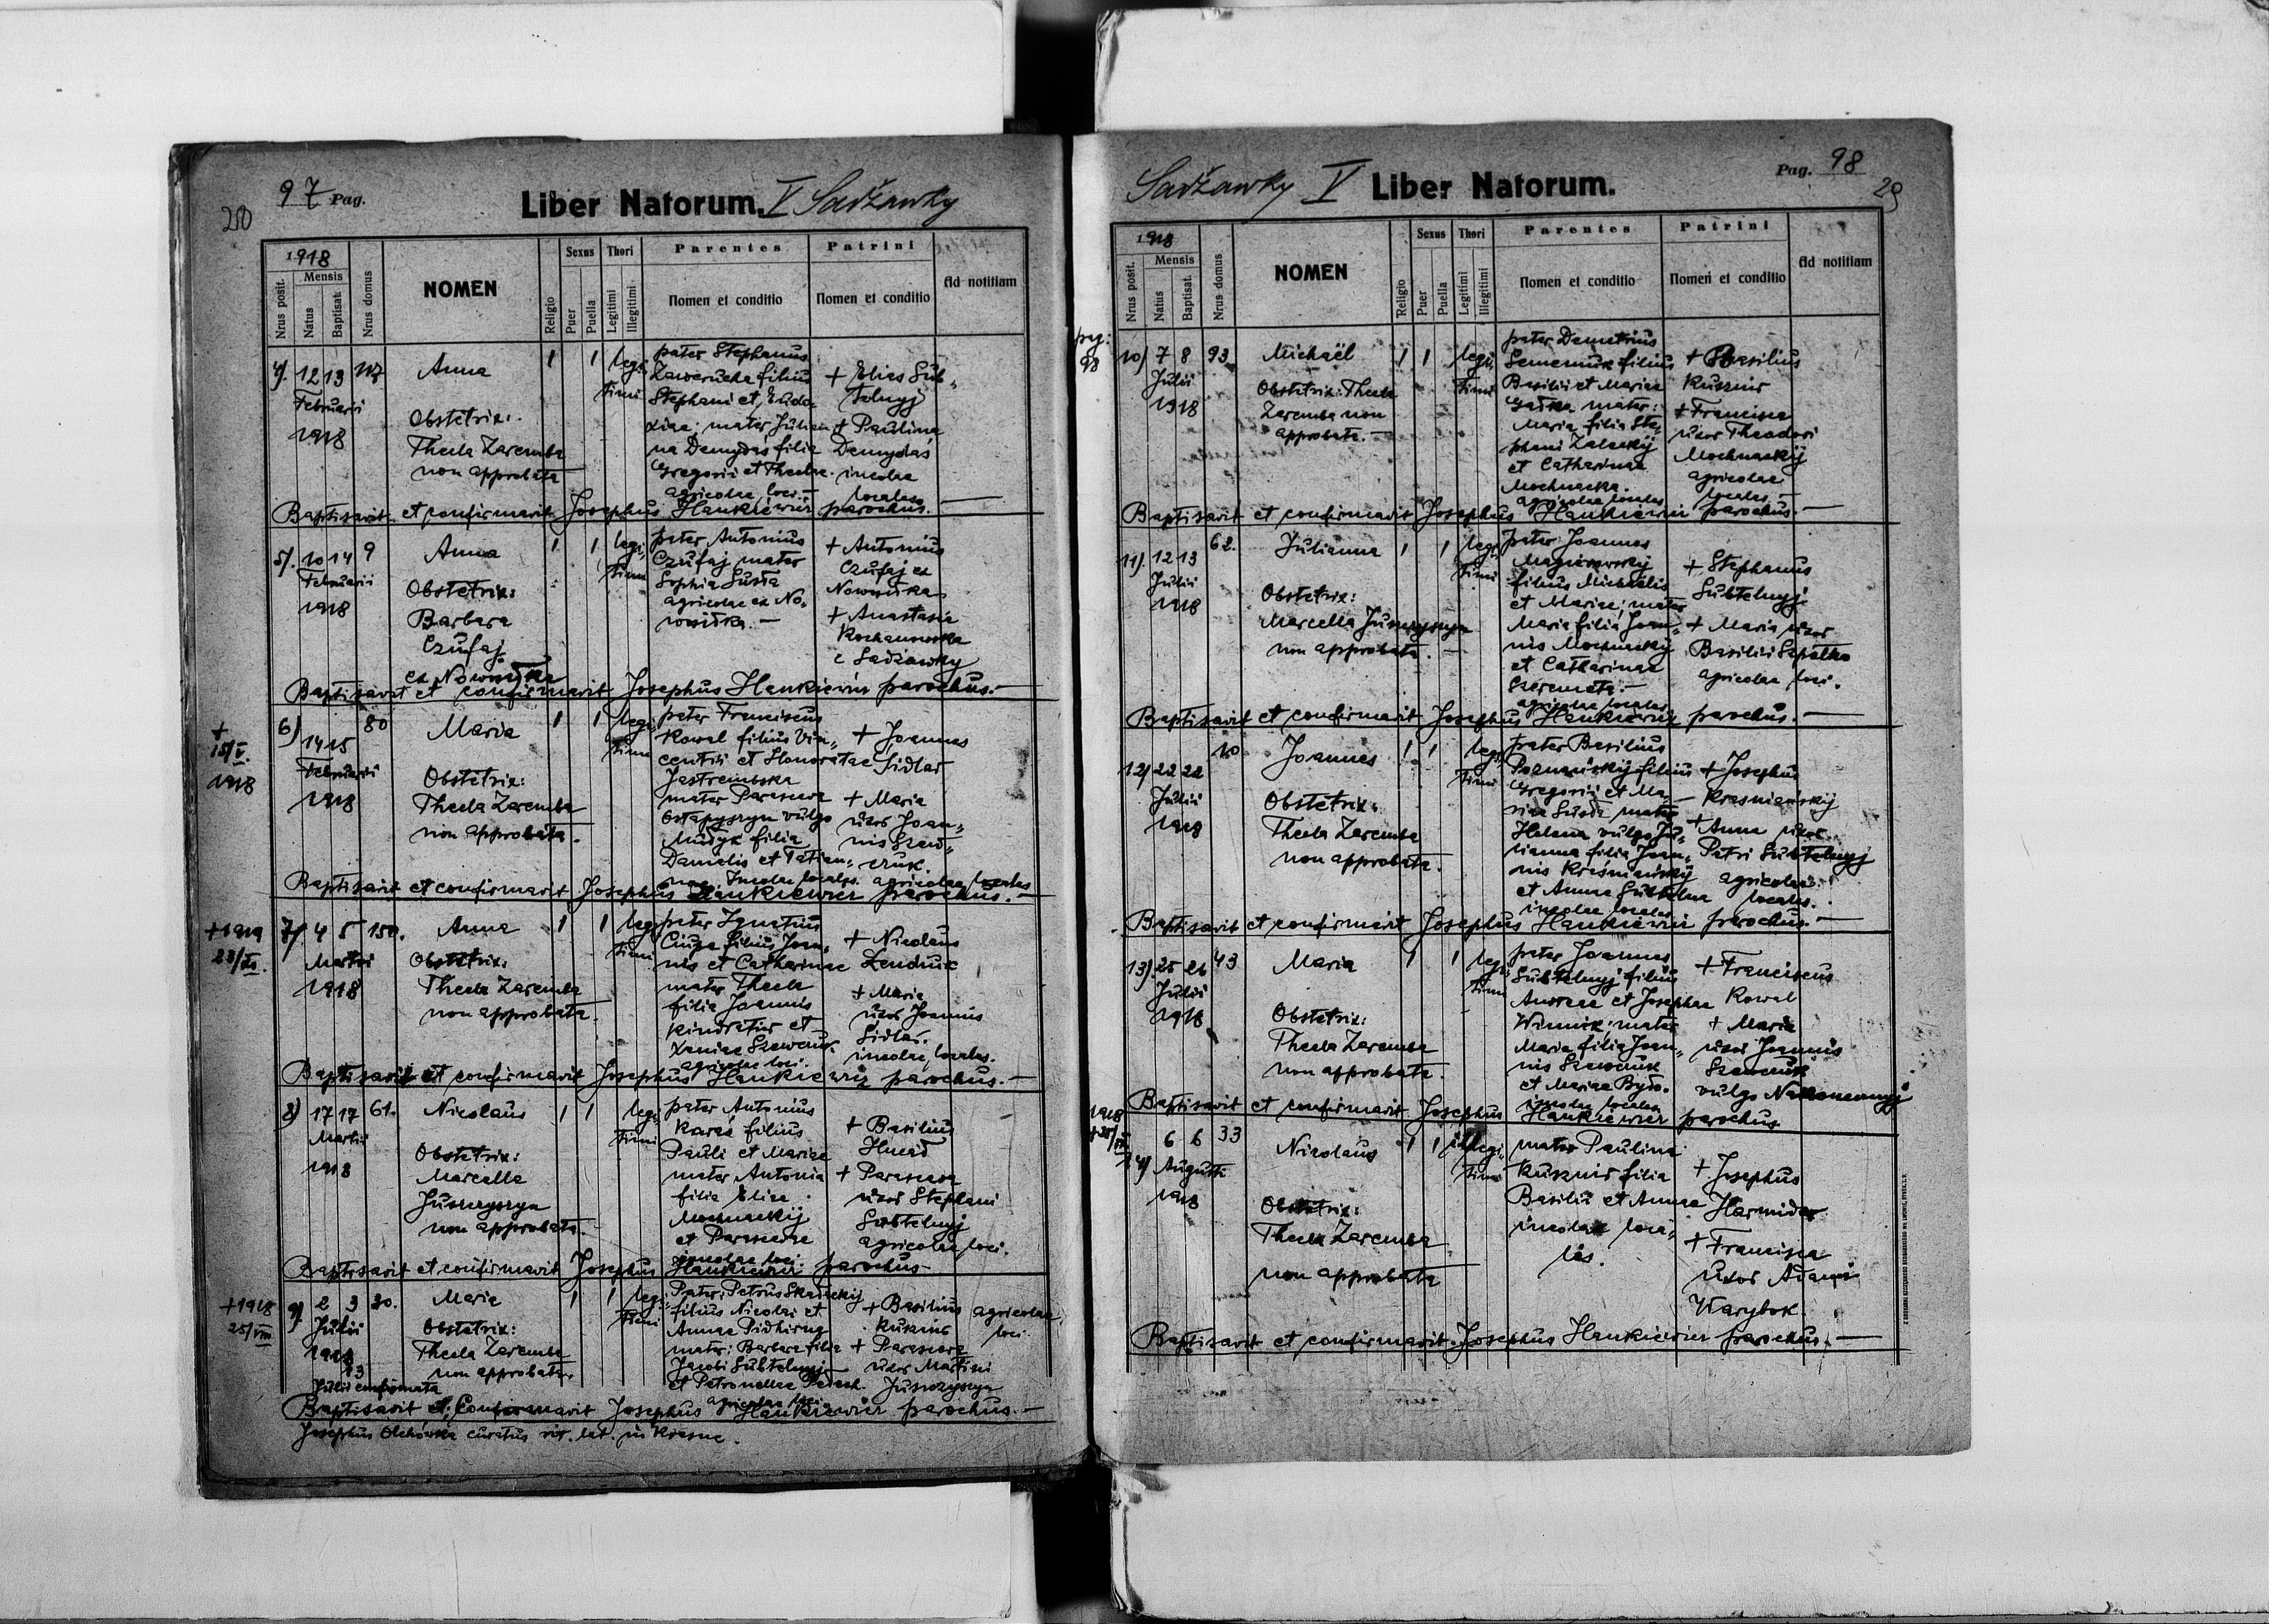 97 Pag.
20
Liber Natorum. V Sadżawky
1918
Nrus posit.
Mensis
Natus
Baptisat
Nrus domus
NOMEN
Religio
Sexus
Puer
Puella
Thori
Legitimi
Illegitimi
Parentes
Nomen et conditio
Patrini
Nomen et conditio
Ad notitiam
4). 12 13 Anna 1 1 legi„
Februarii timi
1918
Obstetrix:
Thecla Zaremba
non approbata
pater Stephanus
Zawerucha filius
Stephani et Eudo-
xiae; mater Julian
na Demydas filia
Gregorii et Theclae
agricolae loci.—
+ Elias Sub„
telnyj
+ Paulina
Demydas
incolae
locales.
Baptisavit et confirmavit Josephus Hankiewicz parochus.
5). 10 14 9 Anna 1 1 legi„
Februarii timi
1918
Obstetrix:
Barbara
Czufaj
ex Nowosiłka
pater Antonius
Czufaj mater
Sophia Susła
agricolae ex No„
wosiłka.—
+ Antonius
Czufaj ex
Nowosiłka
+ Anastasia
Kochanowska
e Sadżawky
Baptisavit et confirmavit Josephus Hankiewicz parochus.—
+
15/V.
1918
6) 14 15 80 Maria 1 1 legi„
Februarii timi
1918
Obstetrix:
Thecla Zaremba
non approbata.
pater Franciscus
Kowal filius Vin„
centii et Honoratae
Jastrembska
mater Parasceva
Ostapyszyn vulgo
Mudyk filia
Danielis et Tatian„
nae. Incolae locales.
+ Joannes
Sidlar
+ Maria
uxor Joan„
nis Szew„
czuk.
agricolae locales
Baptisavit et confirmavit Josephus Hankiewicz parochus.—
+1919
23/IX.
7) 4 5 150. Anna 1 1 legi„
Martii timi
1918
Obstetrix:
Thecla Zaremba
non approbata.
pater Ignatius
Ciupa filius Joan„
nis et Catharinae
mater Thecla
filia Joannis
Kindratiw et
Xeniae Szewczuk.
agricolae loci.
+ Nicolaus
Zendruk
+ Maria
uxor Joannis
Sidlar.
incolae locales.
Baptisavit et confirmavit Josephus Hankiewicz parochus.—
8) 17 17 61. Nicolaus 1 1 legi„
Martii timi
1918
Obstetrix:
Marcella
Juszczyszyn
non approbata.
pater Antonius
Karaś filius
Pauli et Mariae
mater Antonia
filia Eliae
Mochnackij
et Parascevae
incolae loci.
+ Basilius
Hnid
+ Parasceva
uxor Stephani
Subtelnyj
agricolae loci.
Baptisavit et confirmavit Josephus Hankiewicz parochus
+1918
25/VIII
9). 2 3 30. Maria 1 1 legi„
Julii timi
1918
Obstetrix:
Thecla Zaremba
non approbata.
23
Julii confirmata
Pater: Petrus Skadeckij
filius Nicolai et
Annae Pidhirny
mater: Barbara filia
Jacobi Subtelnyj
et Petronellae
agricolae loci.
+ Basilius
+ Parasceva
uxor Martini
Juszczyszyn
agricolae
loci.
Baptisavit et Confirmavit Josephus Hankiewicz parochus.—
Josephus Olchówka curatus rit. lat. in Krasne.
Sadżawky V Liber Natorum.
Pag. 98
29
1918
Nrus posit.
Mensis
Natus
Baptisat.
Nrus domus
NOMEN
Religio
Sexus
Puer
Puella
Thori
Legitimi
Illegitimi
Parentes
Nomen et conditio
Patrini
Nomen et conditio
Ad notitiam
pag:
98
10) 7 8 93 Michaël 1 1 legi„
Julii timi
1918
Obstetrix: Thecla
Zaremba non
approbata.—
pater Demetrius
Semeniuk filius
Basilii et Mariae
mater:
Maria filia Ste„
phani Zaleckij
et Catharinae
Mochnacka.
agricolae locales
+ Basilius
Kusznir
+ Francisca
uxor Theodori
Mochnackij
agricolae
locales.—
Baptisavit et confirmavit Josephus Hankiewicz parochus.—
11). 12 13 62. Julianna 1 1 legi„
Julii timi
1918
Obstetrix:
Marcella Juszczyszyn
non approbata.—
pater Joannes
Magierowskij
filius Michaelis
et Mariae; mater
Maria filia Joan„
nis Mochnackij
et Catharinae
Szeremeta.—
agricolae locales
+ Stephanus
Subtelnyj
+ Maria uxor
Basilii Sapałko
agricolae loci.
Baptisavit et confirmavit Josephus Hankiewicz parochus.—
12) 22 22 10 Joannes 1 1 legi„
Julii timi
1918
Obstetrix:
Thecla Zaremba
non approbata.
pater Basilius
Poznańskij filius
Gregorii et Ma„
riae Susła mater
Helena vulgo Ju„
lianna filia Joan„
nis Kresniańskij
et Annae Subtelna
incolae locales
+ Josephus
Kresniańskij
+ Anna uxor
Petri Subtelnyj
agricolae
locales.
Baptisavit et confirmavit Josephus Hankiewicz parochus.—
13). 25 26 43 Maria 1 1 legi„
Julii timi
1918
Obstetrix:
Thecla Zaremba
non approbata.
pater Joannes
Subtelnyj filius
Andreae et Josephae
Winnik; mater
Maria filia Joan„
nis Szewczuk
et Mariae Bydo.
incolae locales
+ Franciscus
Kowal
+ Maria
uxor Joannis
Szewczuk
vulgo Nakonecznyj
Baptisavit et confirmavit Josephus Hankiewicz parochus
1918
14) 6 6 33 Nicolaus 1 1 illegi„
Augusti timi
1918
Obstetrix:
Thecla Zaremba
non approbata
mater Paulina
Kusznir filia
Basilii et Annae
incolae loca„
les.
+ Josephus
Harmider
+ Francisca
uxor Adami
Warybok.
Baptisavit et confirmavit Josephus Hankiewicz parochus.—